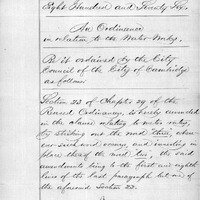 Eight Hundred and Seventy Six.
An Ordinance
in relation to the Water Works.
Be it ordained by the City
Council of the City of Cambridge
as follows:
Section 23 of Chapter 29 of the
Revised Ordinances, is hereby amended
in the clause relating to water rates,
by striking out the word three, where
ever such word occurs, and inserting in
place thereof the word two, the said
amendments being to the first and eighth
lines of the last paragraph but one of
the aforesaid Section 23.